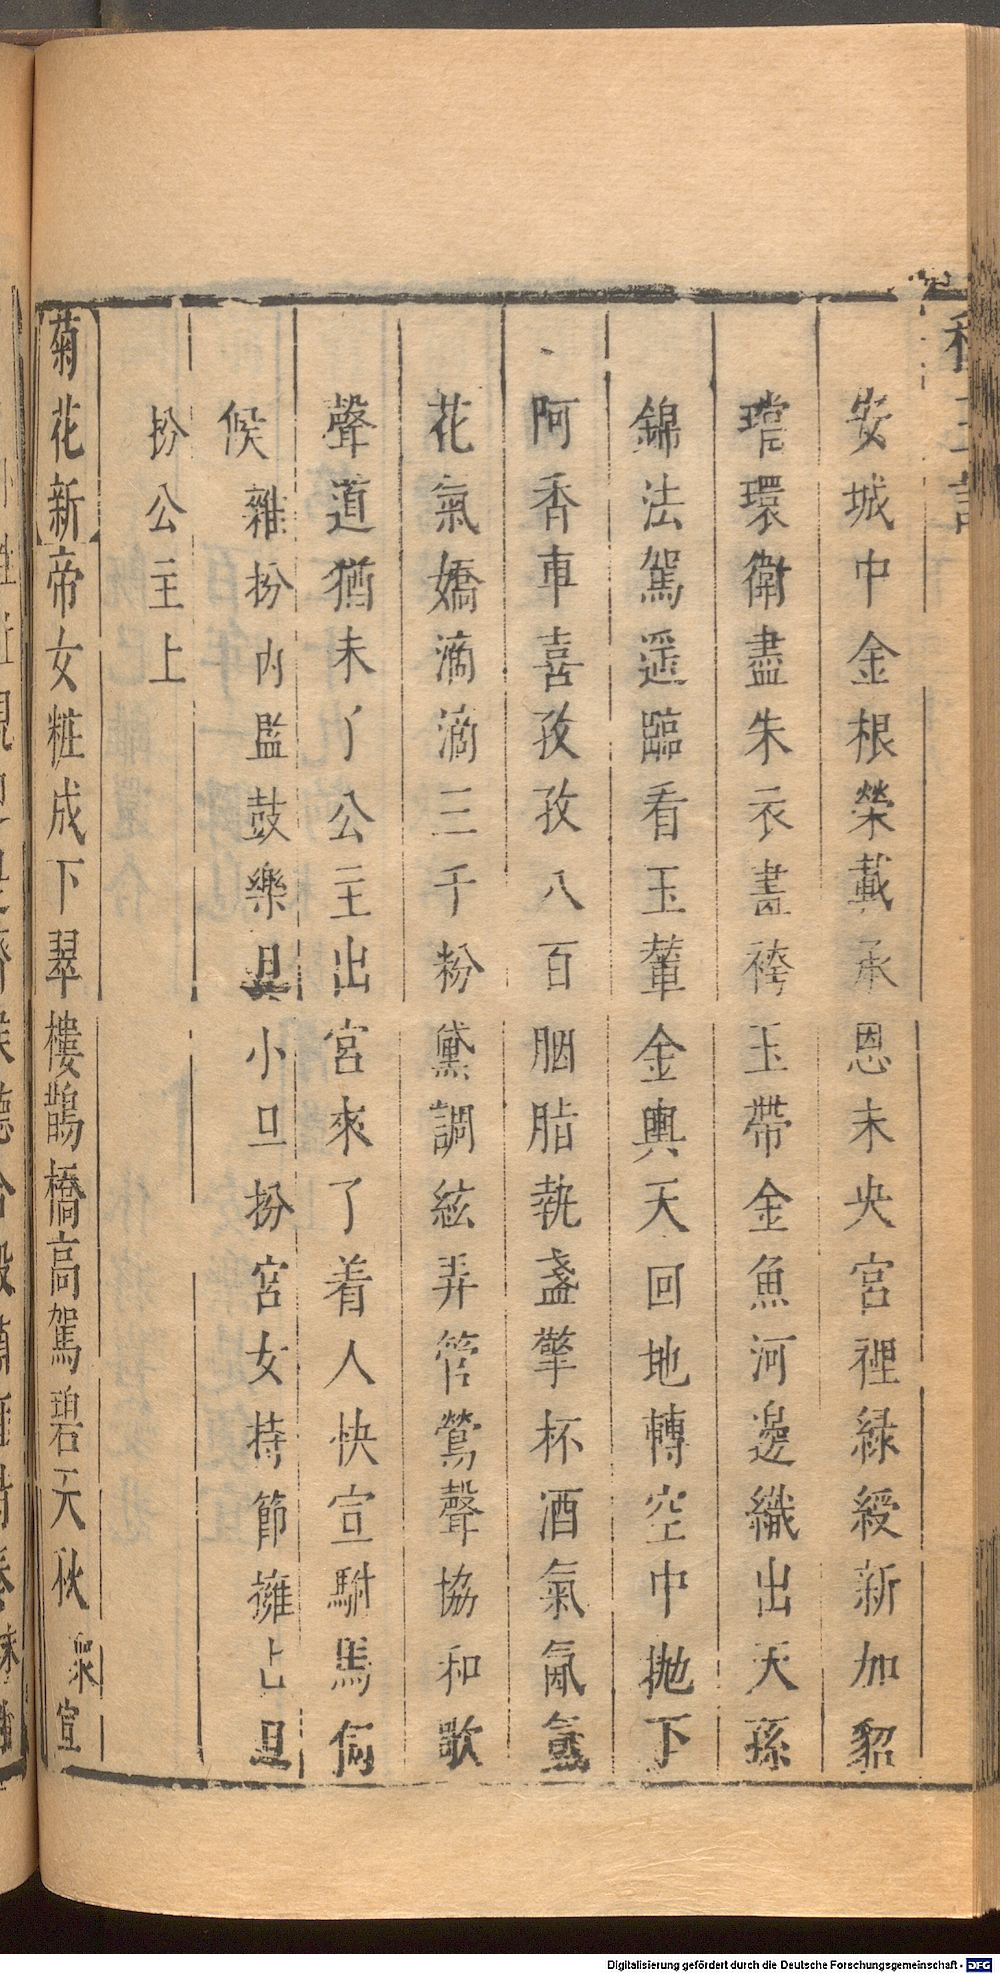 安城中金根榮戴承恩未央宮裡綠綬新加貂
璫環衛盡朱衣畫袴玉帶金魚河邊織出天孫
錦法駕遥臨看玉輦金輿天回地轉空中拋下
阿香車喜孜孜八百胭脂執盞擎杯酒氣氤氳
花氣嬌滴滴三千粉黛調絃弄管鶯聲協和歌
聲道猶未了公主出宮來了着人快宣駙馬伺
候 雜扮內監鼓樂具小旦扮宮女持節擁占旦
扮公主上
菊花新 帝女粧成下翠樓鵲橋高駕碧天秋 衆宣
Digitalisierung gefördert durch die Deutsche Forschungsgemeinschaft - DFG